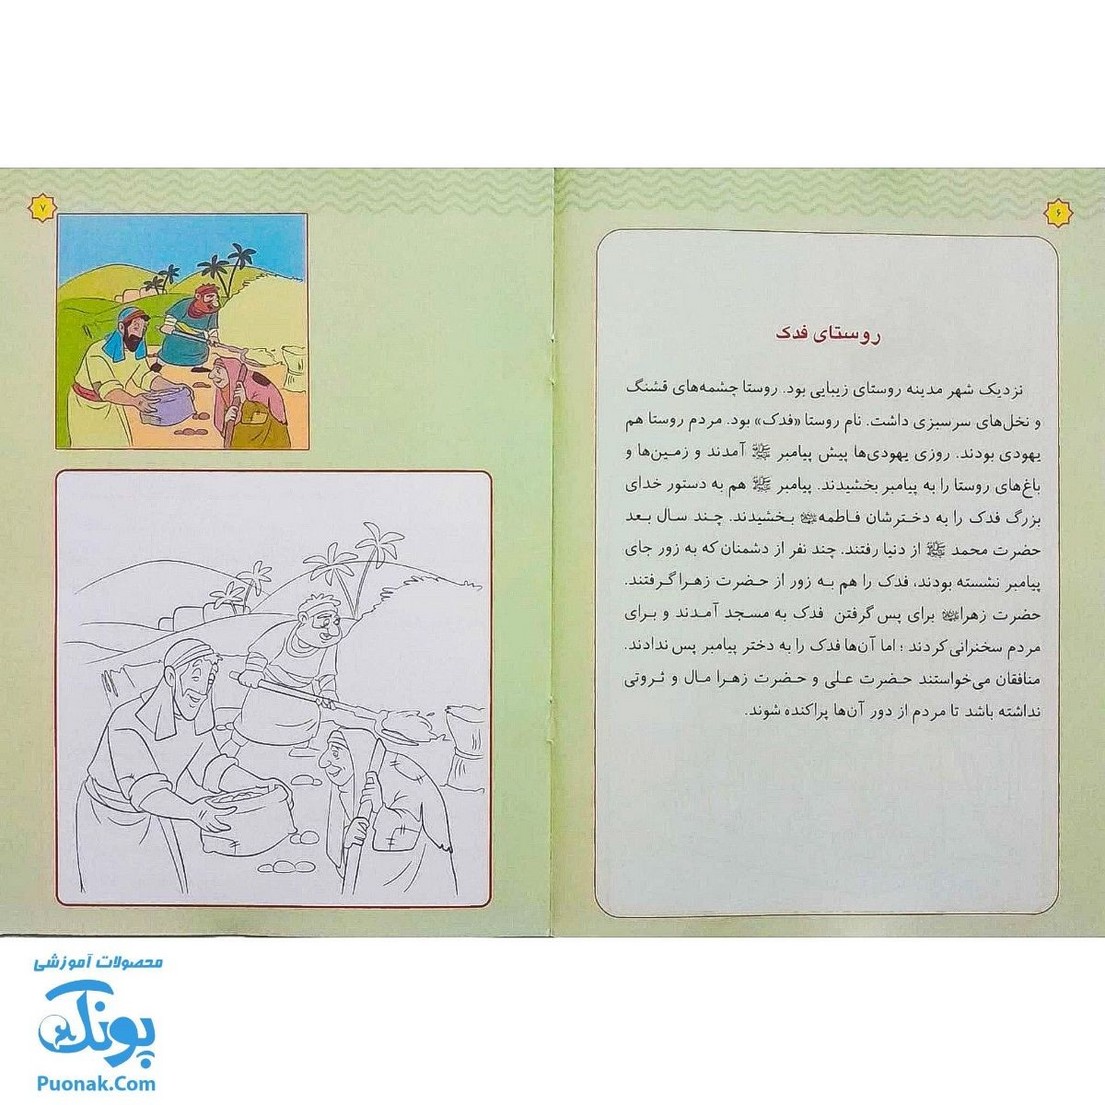 ۶
روستای فدک
نزدیک شهر مدینه روستای زیبایی بود. روستا چشمه‌های قشنگ
و نخل‌های سرسبزی داشت. نام روستا «فدک» بود. مردم روستا هم
یهودی بودند. روزی یهودی‌ها پیش پیامبر ﷺ آمدند و زمین‌ها و
باغ‌های روستا را به پیامبر بخشیدند. پیامبر ﷺ هم به دستور خدای
بزرگ فدک را به دخترشان فاطمه بخشیدند. چند سال بعد
حضرت محمد ﷺ از دنیا رفتند. چند نفر از دشمنان که به زور جای
پیامبر نشسته بودند، فدک را هم به زور از حضرت زهرا گرفتند.
حضرت زهرا برای پس گرفتن فدک به مسجد آمدند و برای
مردم سخنرانی کردند ؛ اما آن‌ها فدک را به دختر پیامبر پس ندادند.
منافقان می‌خواستند حضرت علی و حضرت زهرا مال و ثروتی
نداشته باشد تا مردم از دور آن‌ها پراکنده شوند.
۷
محصولات آموزشی
پونک
Puonak.Com